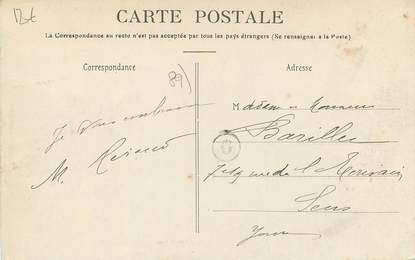 CARTE POSTALE
La Correspondance au recto n'est pas acceptée par tous les pays étrangers (Se renseigner à la Poste)
Correspondance
Adresse
89)
Je vous embrasse
M.
M adam et Monsieur
Barillet
rue de l'
Sens
Yonne